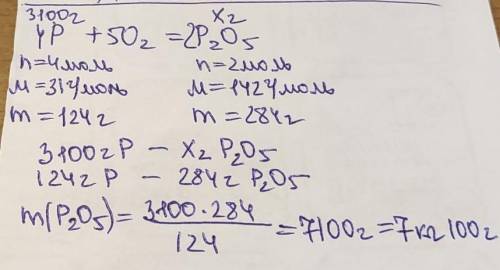 3100г x г
4P + 5O₂ = 2P₂O₅
n=4моль n=2моль
M=31г/моль M=142г/моль
m=124г m=284г
3100г P – x г P₂O₅
124г P – 284г P₂O₅
m(P₂O₅) = 3100·284 / 124 = 7100г = 7кг 100г